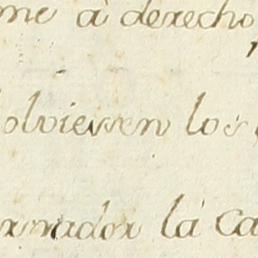 me à derecho
olviessen los
rmador la Ca